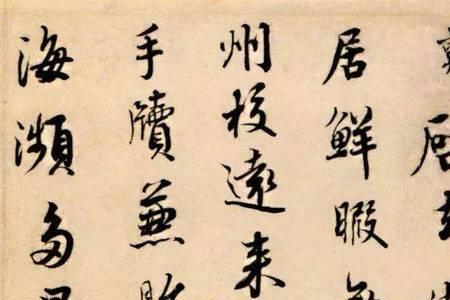 居鮮暇
州校遠来
手牘兼
海瀕多